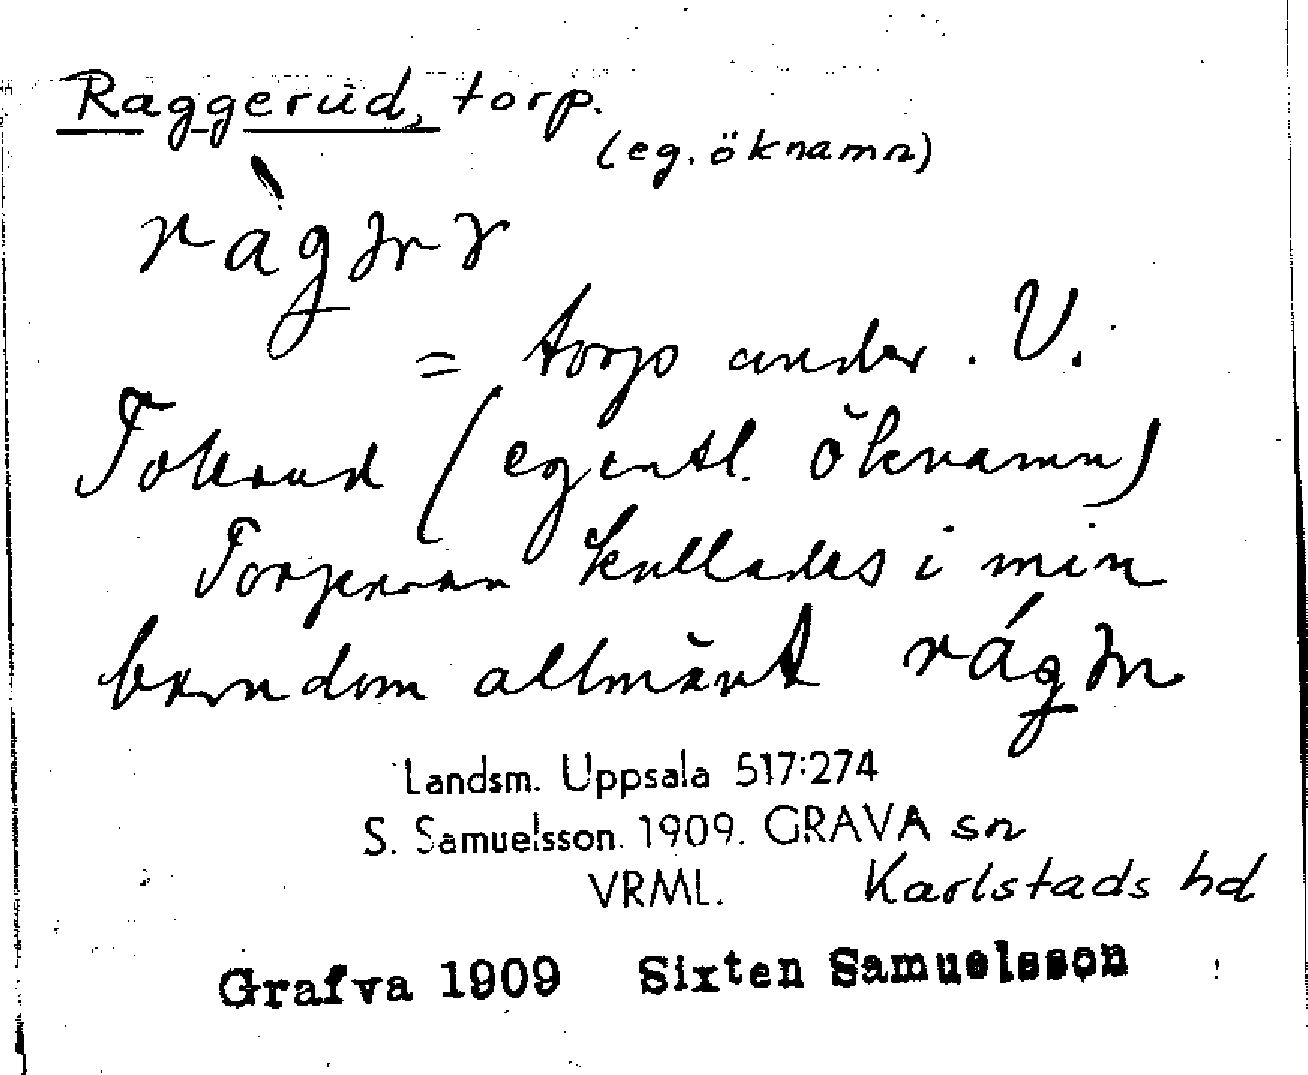 Raggerud, torp.
(eg. öknamn)
= torp under. V.
Tolerud (egentl. öknamn)
Torparen kallades i min
barndom allmänt
Landsm. Uppsala 517:274
S. Samuelsson. 1909. GRAVA sn
VRML. Karlstads hd
Grafva 1909 Sixten Samuelsson